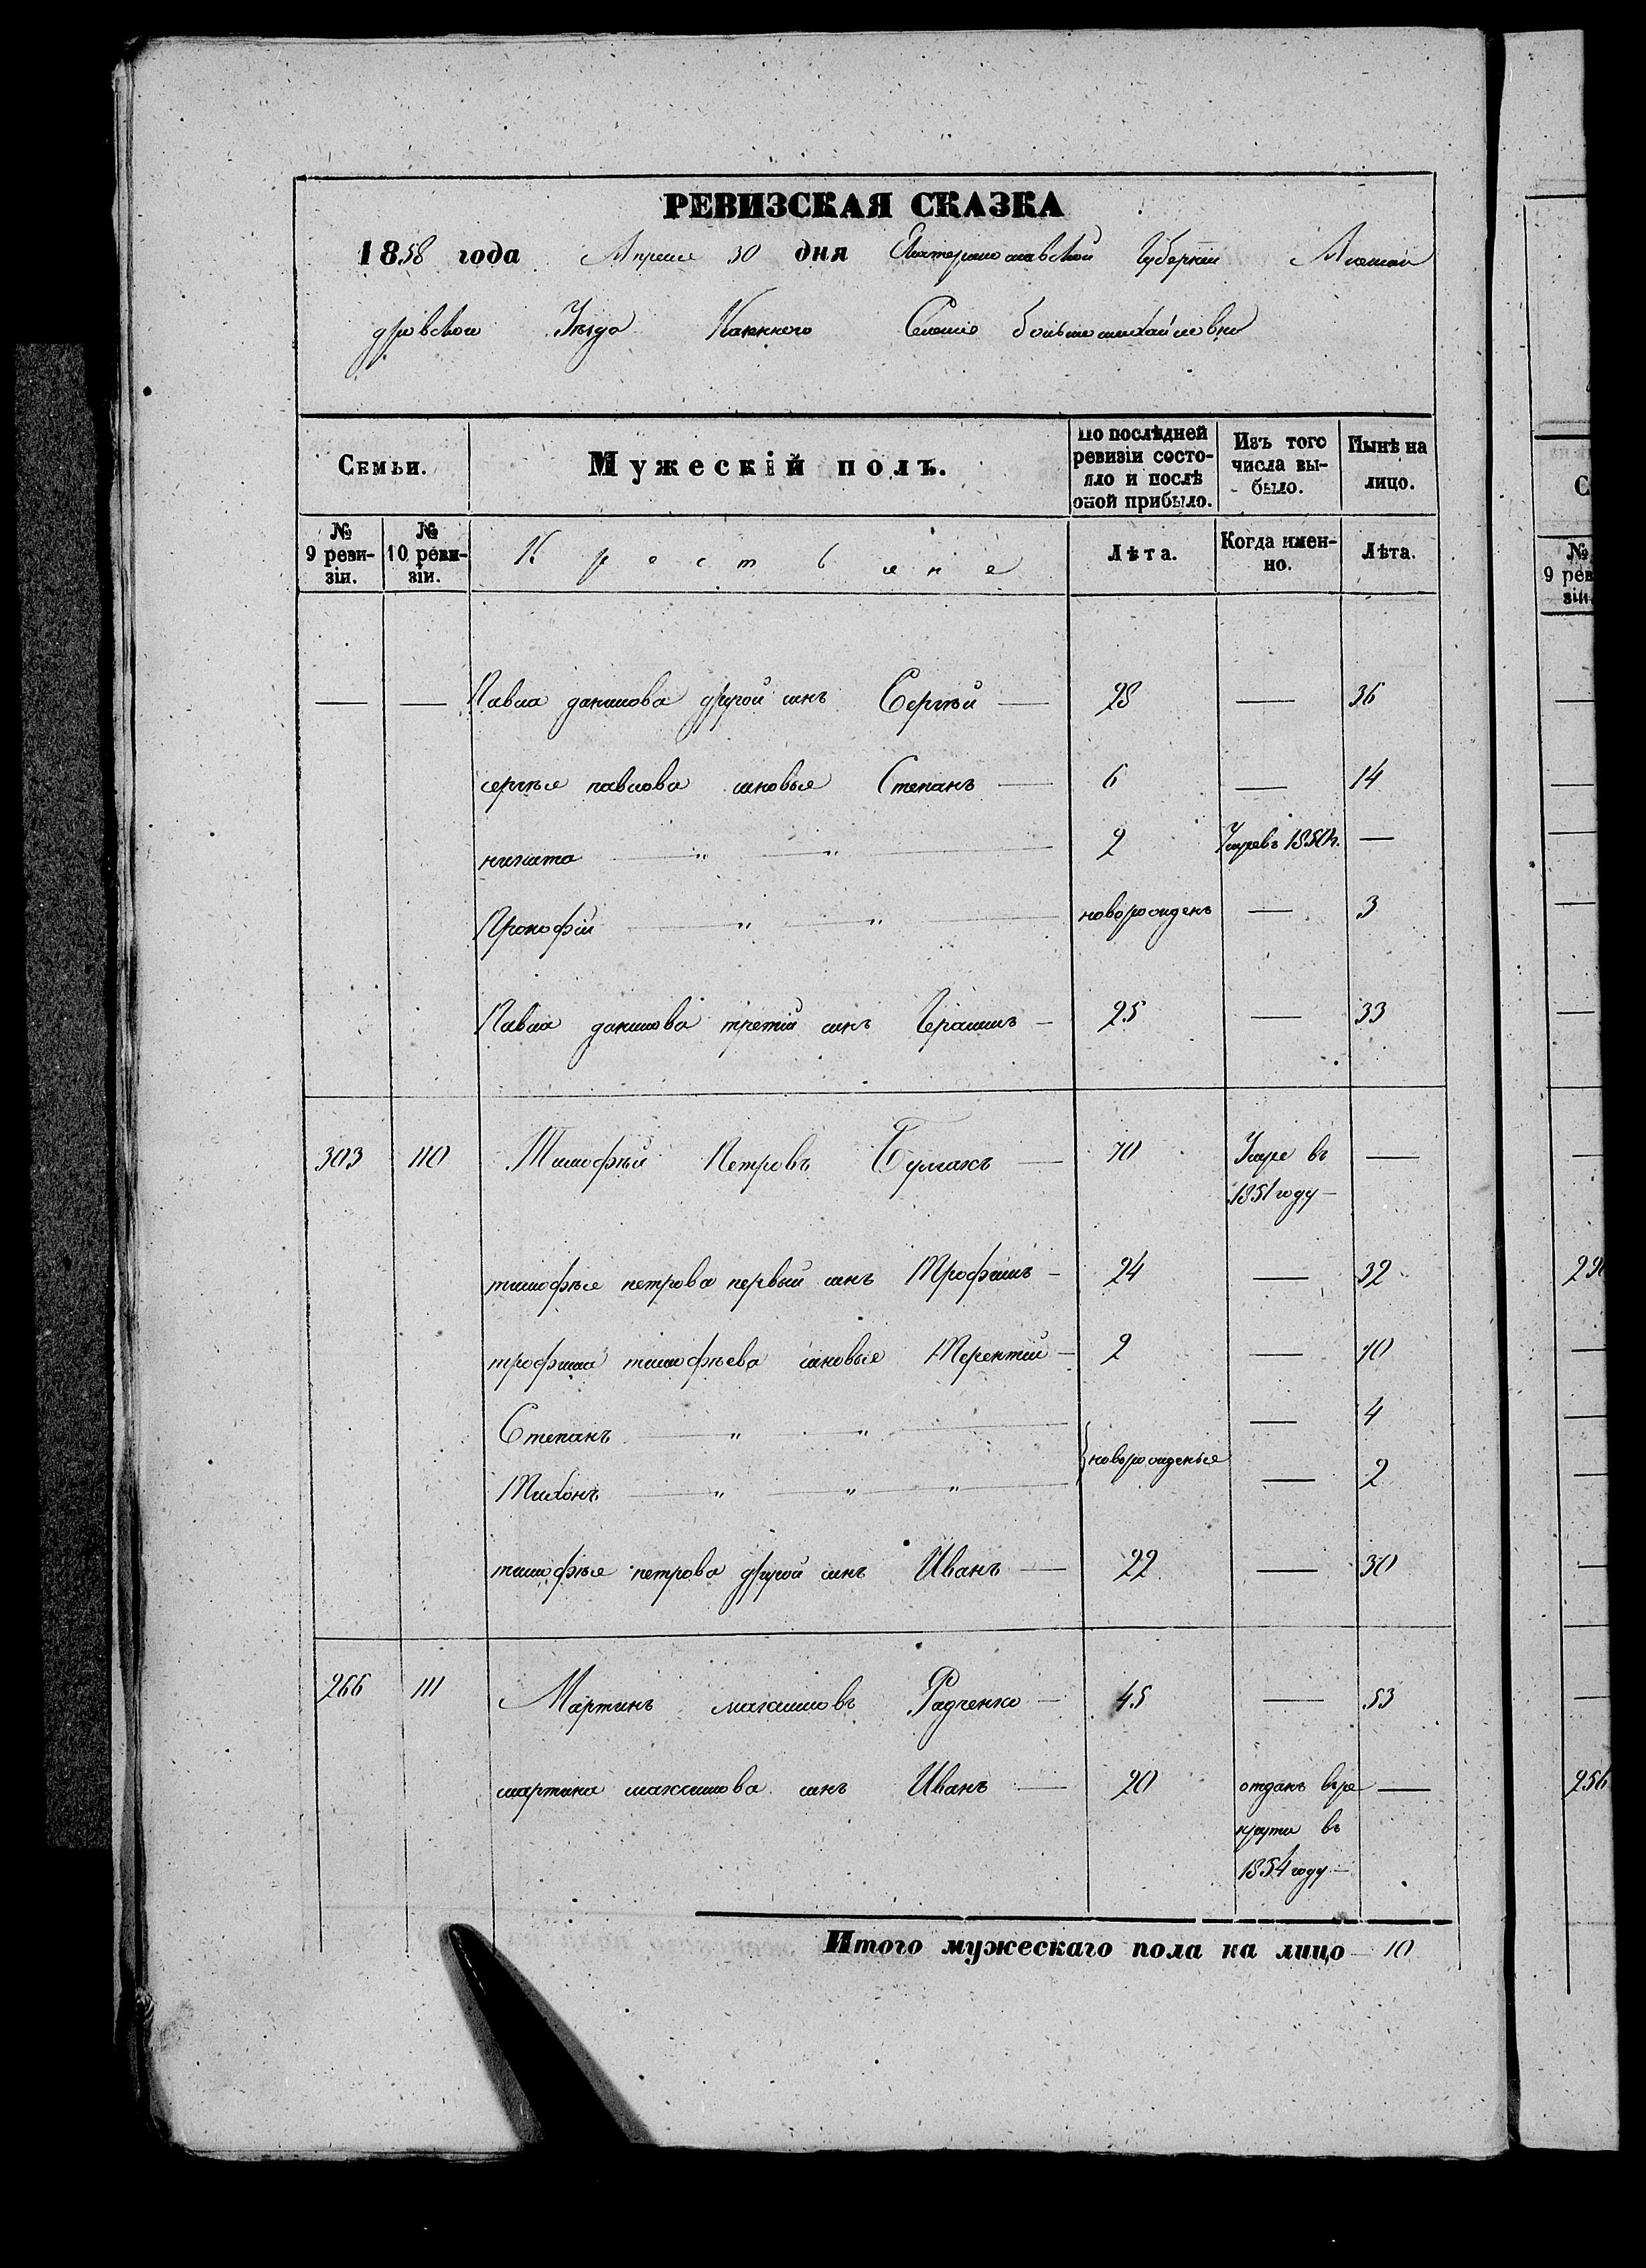 РЕВИЗСКАЯ СКАЗКА
1858 года Апреля 30 дня Екатеринославской Губерніи Алексан
дровского Уѣзда Казенного Селенія больше михайловки
Семьи. Мужескій полъ. По послѣдней ревизіи состояло и послѣ оной прибыло. Изъ того числа вы-было. Нынѣ на лицо.
№ 9 реви-зіи. № 10 реви-зіи. Крестьяне Лѣта. Когда имен-но. Лѣта.
— — Павла данилова другой сынъ Сергѣй — 28 — 36
сергѣя павлова сыновья Степанъ — 6 — 14
никита — " — " — 2 Умре въ 1850 г. —
Прокофій — " — " — новорожденъ — 3
Павла данилова третій сынъ Герасимъ — 25 — 33
303 110 Тимофѣй Петровъ Бурлакъ — 70 Умре въ —
1851 году —
тимофѣя петрова первый сынъ Трофимъ — 24 — 32
трофима тимофѣева сыновья Терентій — 2 — 10
Степанъ — " — " — — 4
новорожденые
Тихонъ — " — " — " — — 2
тимофѣя петрова другой сынъ Иванъ — 22 — 30
266 111 Мартинъ максимовъ Радченко — 45 — 53
мартина максимова сынъ Иванъ — 20 отданъ в ре —
круты въ
1854 году —
Итого мужескаго пола на лицо — 10
С
№
9 рев
зіи
256